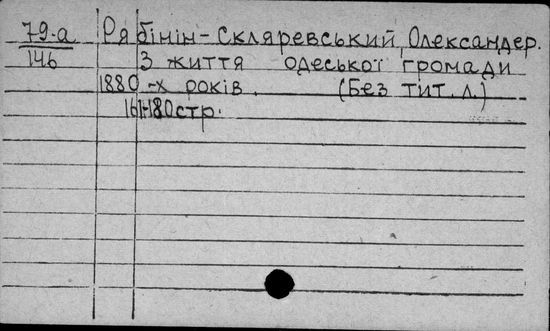 79-а Рябінін-Скляревський, Олександер.
146 З життя одеської громади
1880-х років. (Без тит. л.)
161-180стр.